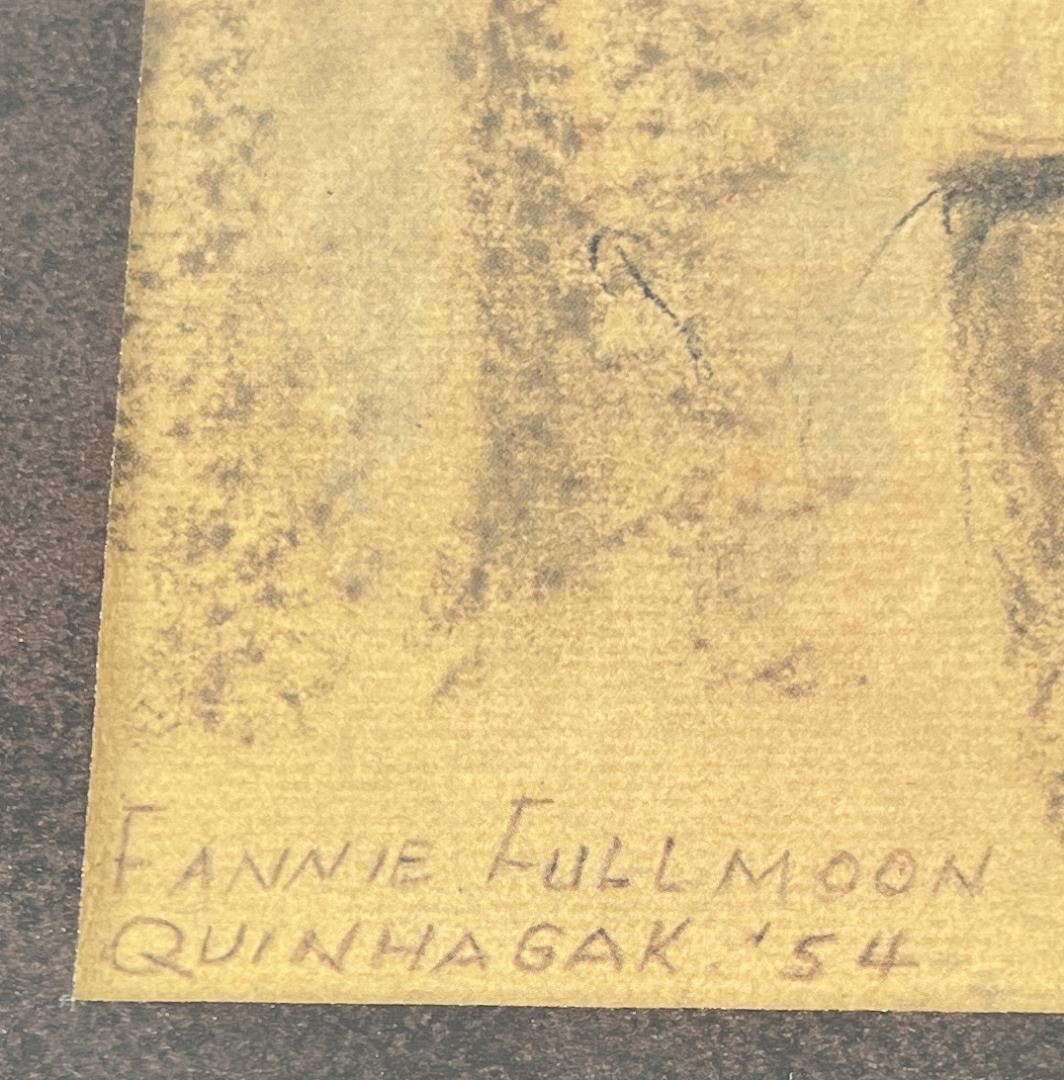 FANNIE FULLMOON
QUINHAGAK. '54